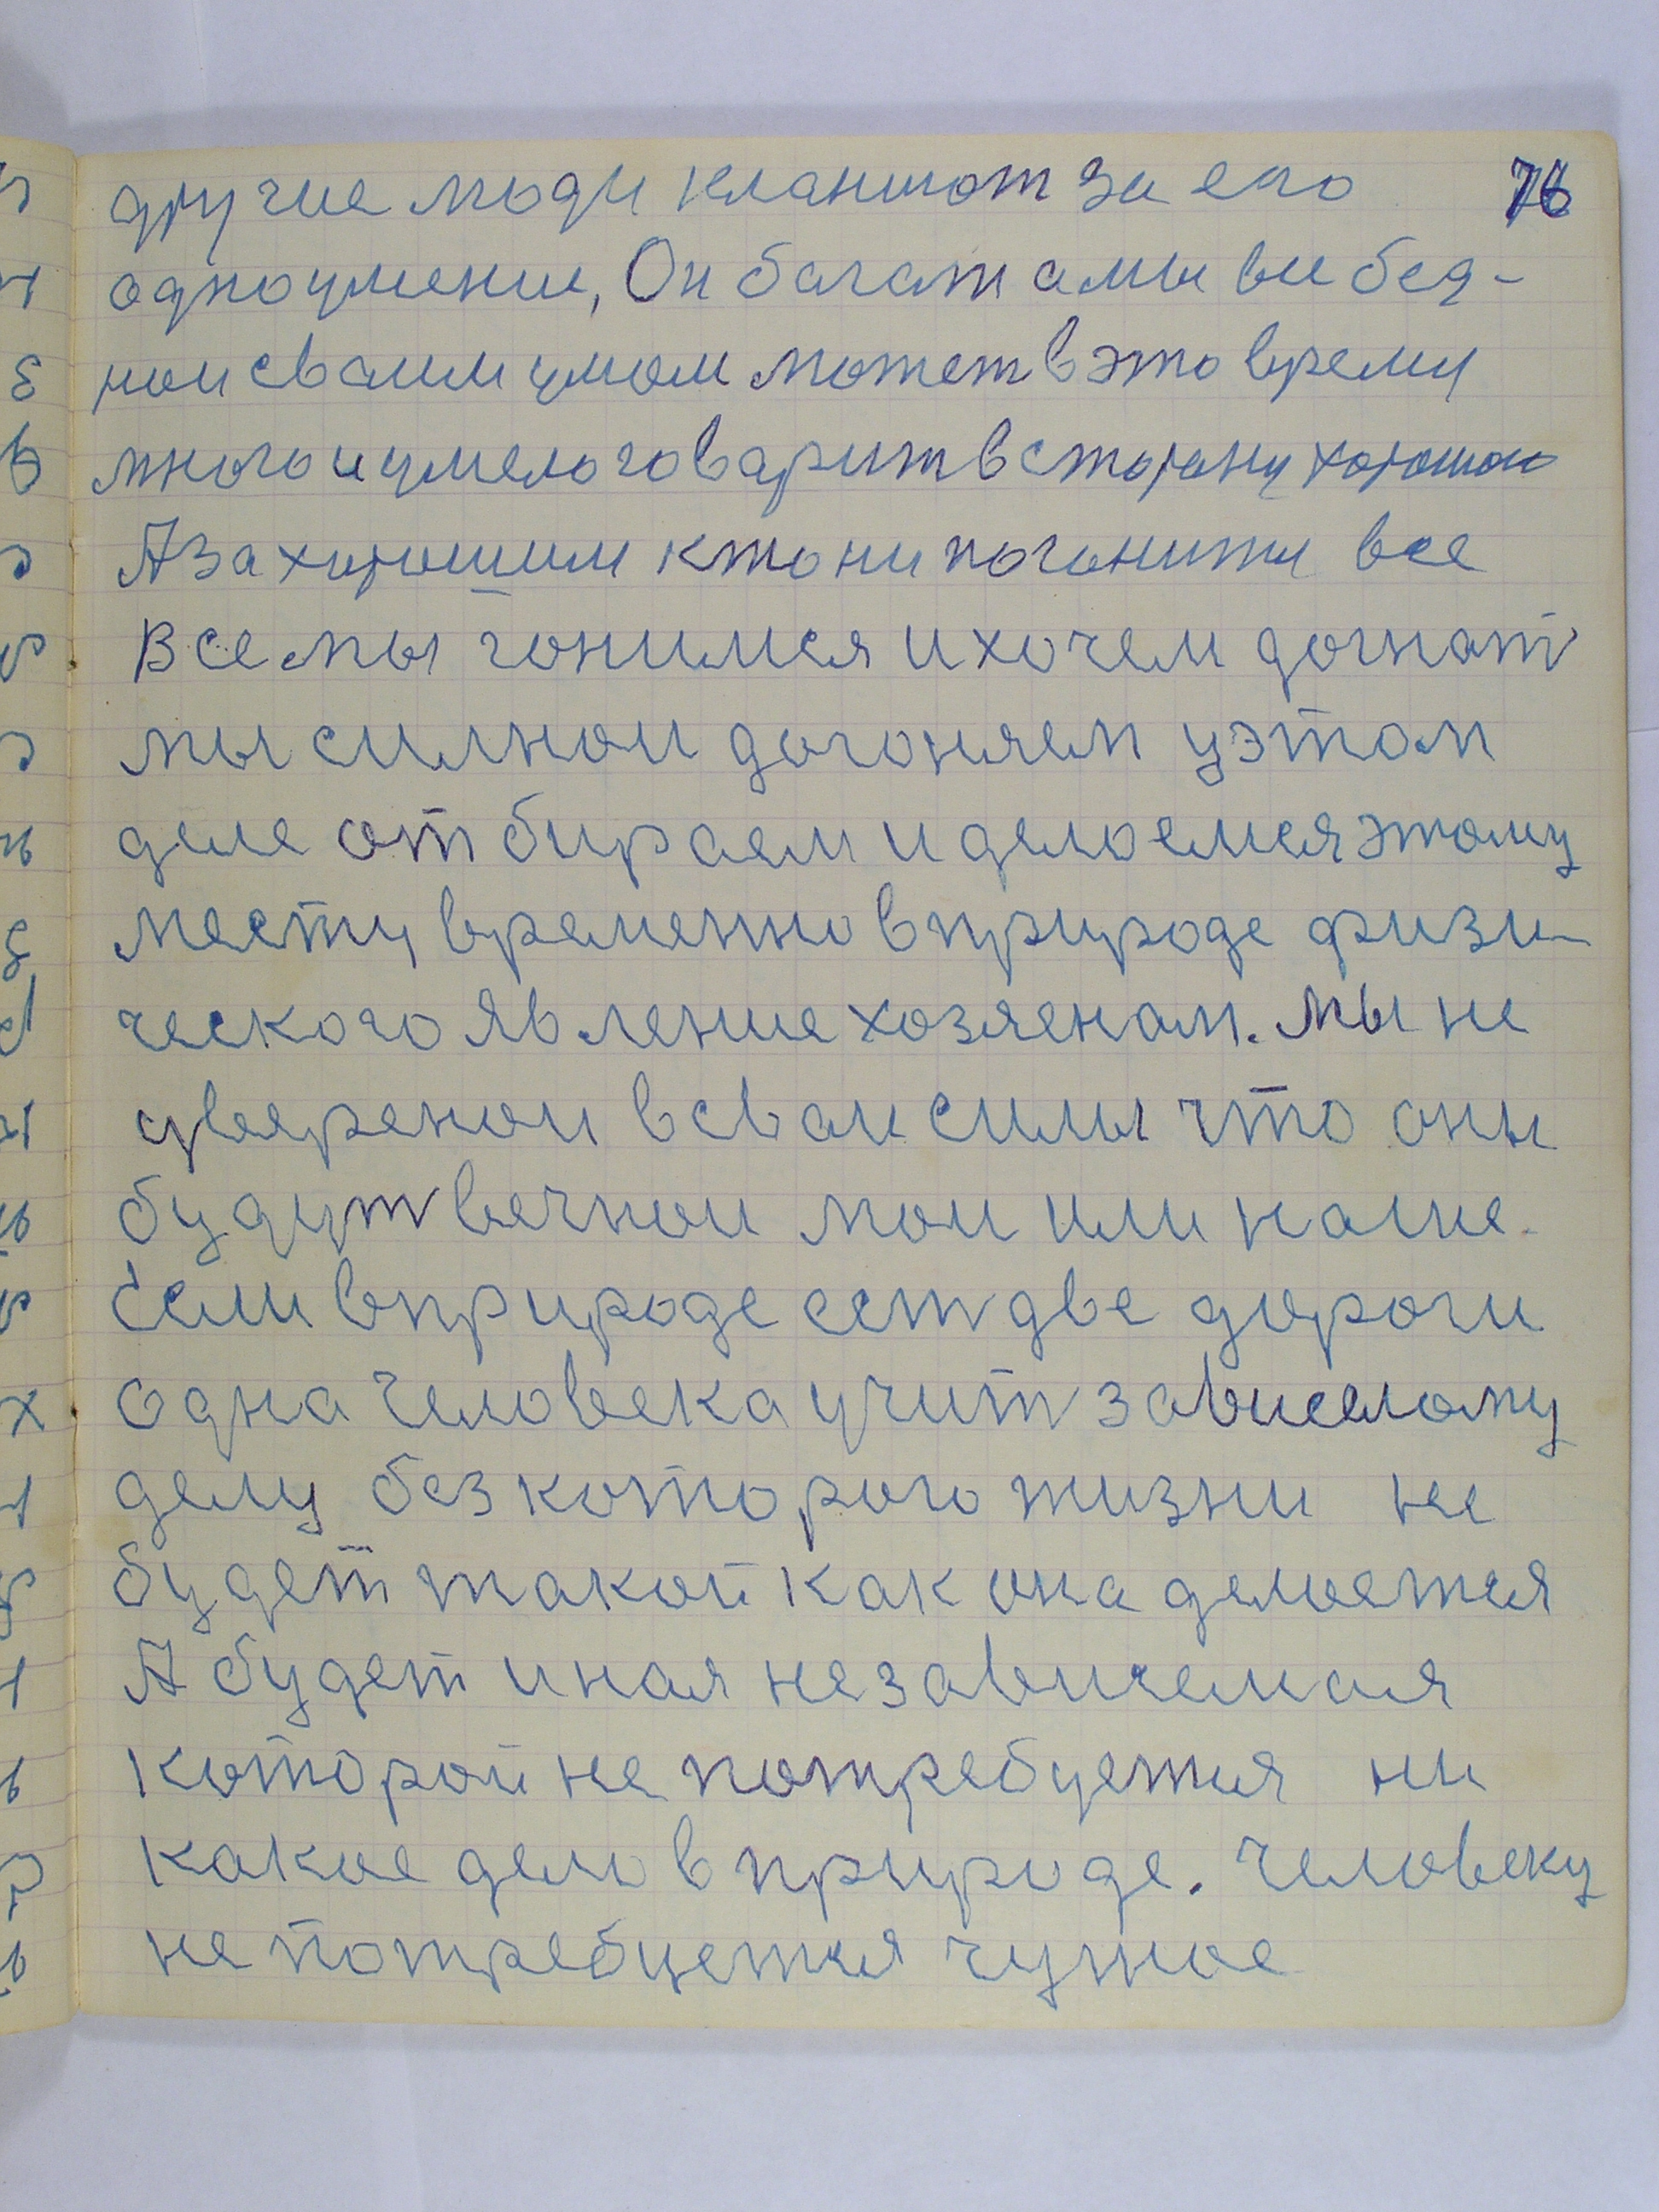 76
другие люди кланиют за его
одно умение, Он багат а мы вие бед-
нои сваим умом может в это время
много и умело говарит в сторану хорошого
А за хорошим кто ни погонится все
Все мы гонимся и хочем догнат
мы силнои догоняем у этом
деле отбираем и делоемся этому
месту временно в природе физи-
ческого явление хозяенам. мы не
уверенои в сваи силы что оны
будут вечнои мои или наше.
Если в природе ест две дороги
одна человека учит зависемому
делу без которого жизни не
будет такой как она делоется
А будет иная незовисемая
которой не потребуется ни
какое дело в природе. Человеку
не потребуется чужое